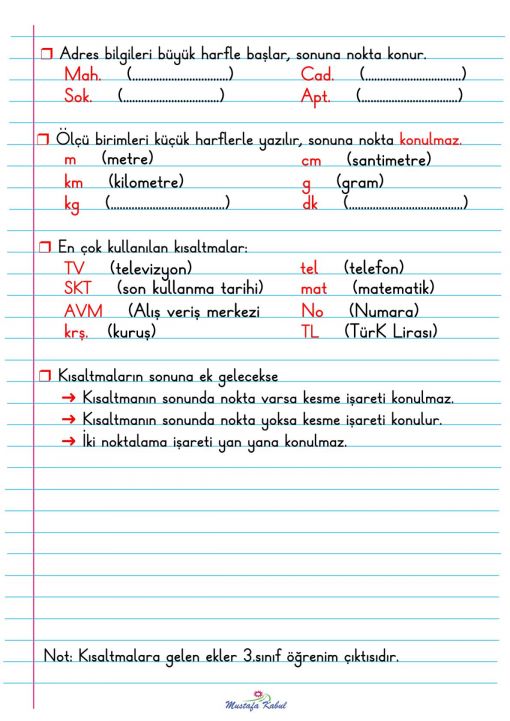 ❒ Adres bilgileri büyük harfle başlar, sonuna nokta konur.
Mah. (................................) Cad. (................................)
Sok. (................................) Apt. (................................)
❒ Ölçü birimleri küçük harflerle yazılır, sonuna nokta konulmaz.
m (metre) cm (santimetre)
km (kilometre) g (gram)
kg (.....................................) dk (.....................................)
❒ En çok kullanılan kısaltmalar:
TV (televizyon) tel (telefon)
SKT (son kullanma tarihi) mat (matematik)
AVM (Alış veriş merkezi No (Numara)
krş. (kuruş) TL (TürK Lirası)
❒ Kısaltmaların sonuna ek gelecekse
→ Kısaltmanın sonunda nokta varsa kesme işareti konulmaz.
→ Kısaltmanın sonunda nokta yoksa kesme işareti konulur.
→ İki noktalama işareti yan yana konulmaz.
Not: Kısaltmalara gelen ekler 3.sınıf öğrenim çıktısıdır.
Mustafa Kabul